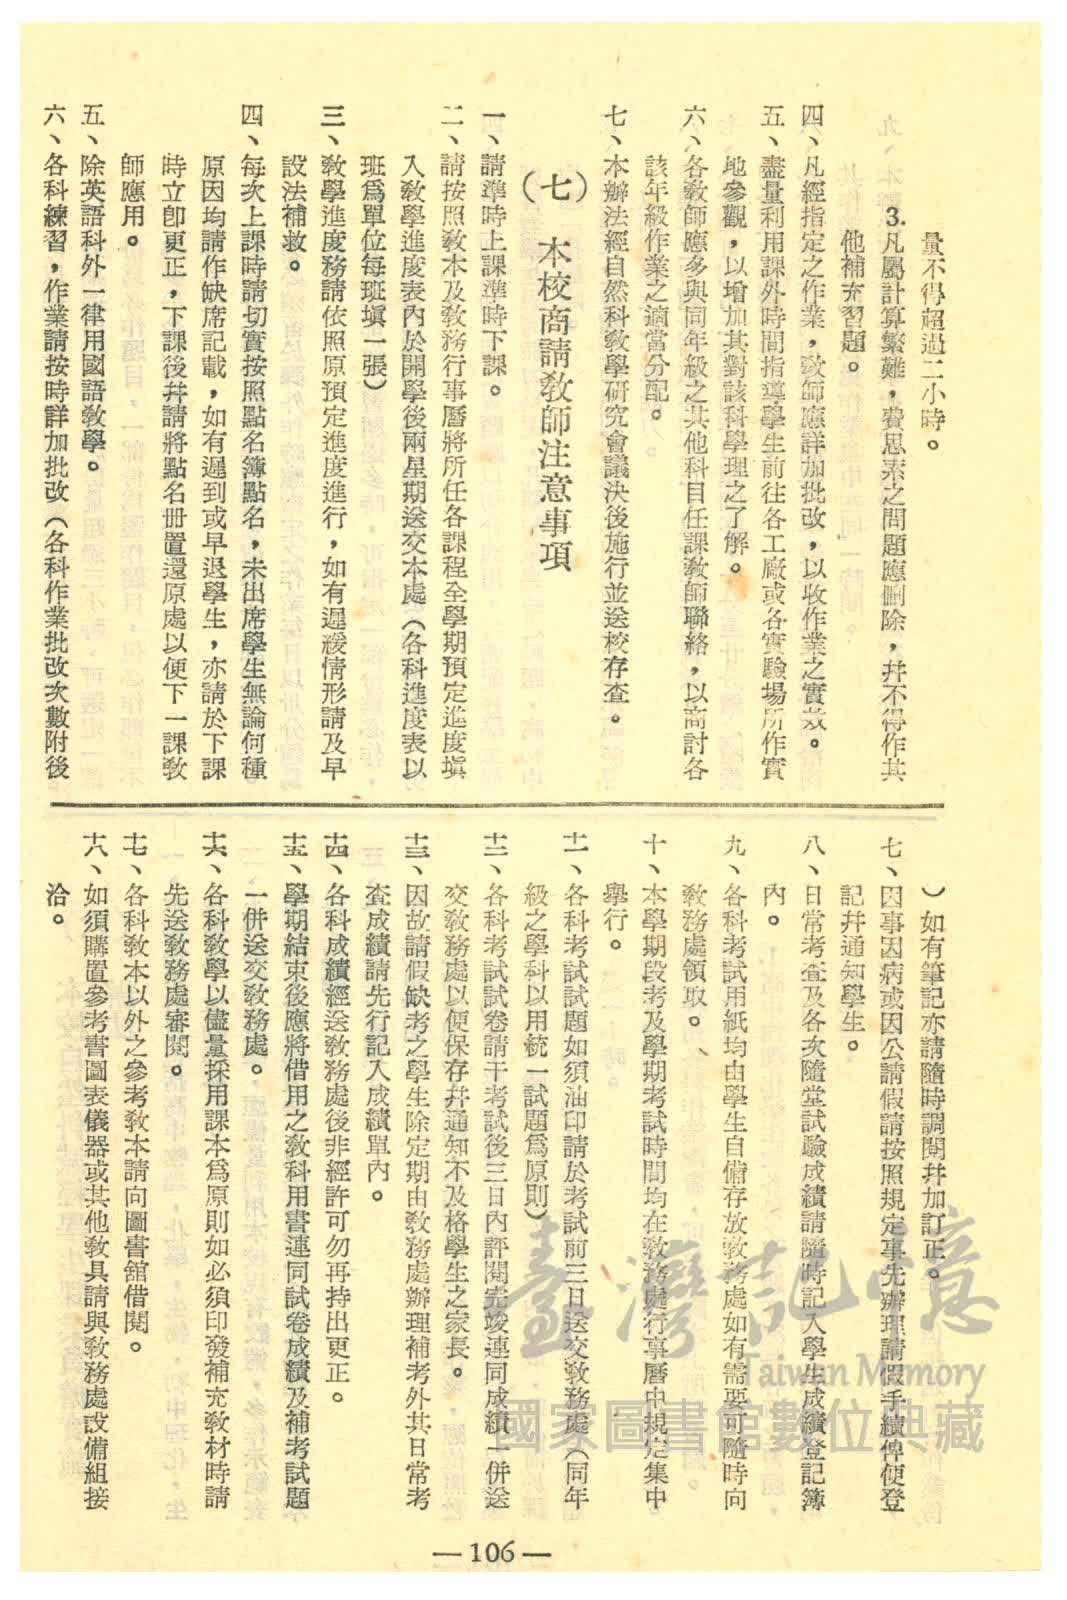 量不得超過二小時。
3.凡屬計算繁難，費思索之問題應刪除，幷不得作其
他補充習題。
四、凡經指定之作業，教師應詳加批改，以收作業之實效。
五、盡量利用課外時間指導學生前往各工廠或各實驗場所作實
地參觀，以增加其對該科學理之了解。
六、各教師應多與同年級之其他科目任課教師聯絡，以商討各
該年級作業之適當分配。
七、本辦法經自然科教學研究會議決後施行並送校存查。
（七）　本校商請教師注意事項
一、請準時上課準時下課。
二、請按照教本及教務行事曆將所任各課程全學期預定進度塡
入教學進度表內於開學後兩星期送交本處（各科進度表以
班爲單位每班塡一張）
三、教學進度務請依照原預定進度進行，如有遲緩情形請及早
設法補救。
四、每次上課時請切實按照點名簿點名，未出席學生無論何種
原因均請作缺席記載，如有遲到或早退學生，亦請於下課
時立卽更正，下課後幷請將點名册置還原處以便下一課教
師應用。
五、除英語科外一律用國語教學。
六、各科練習，作業請按時詳加批改（各科作業批改次數附後
）如有筆記亦請隨時調閱幷加訂正。
七、因事因病或因公請假請按照規定事先辦理請假手續俾便登
記幷通知學生。
八、日常考查及各次隨堂試驗成績請隨時記入學生成績登記簿
內。
九、各科考試用紙均由學生自備存放教務處如有需要可隨時向
教務處領取。
十、本學期段考及學期考試時間均在教務處行事曆中規定集中
舉行。
十一、各科考試試題如須油印請於考試前三日送交教務處（同年
級之學科以用統一試題爲原則）
十二、各科考試試卷請于考試後三日內評閱完竣連同成績一併送
交教務處以便保存幷通知不及格學生之家長。
十三、因故請假缺考之學生除定期由教務處辦理補考外其日常考
查成績請先行記入成績單內。
十四、各科成績經送教務處後非經許可勿再持出更正。
十五、學期結束後應將借用之教科用書連同試卷成績及補考試題
一併送交教務處。
十六、各科教學以儘量採用課本爲原則如必須印發補充教材時請
先送教務處審閱。
十七、各科教本以外之參考教本請向圖書舘借閱。
十八、如須購置參考書圖表儀器或其他教具請與教務處設備組接
洽。
—106—
臺灣記憶
Taiwan Memory
國家圖書館數位典藏